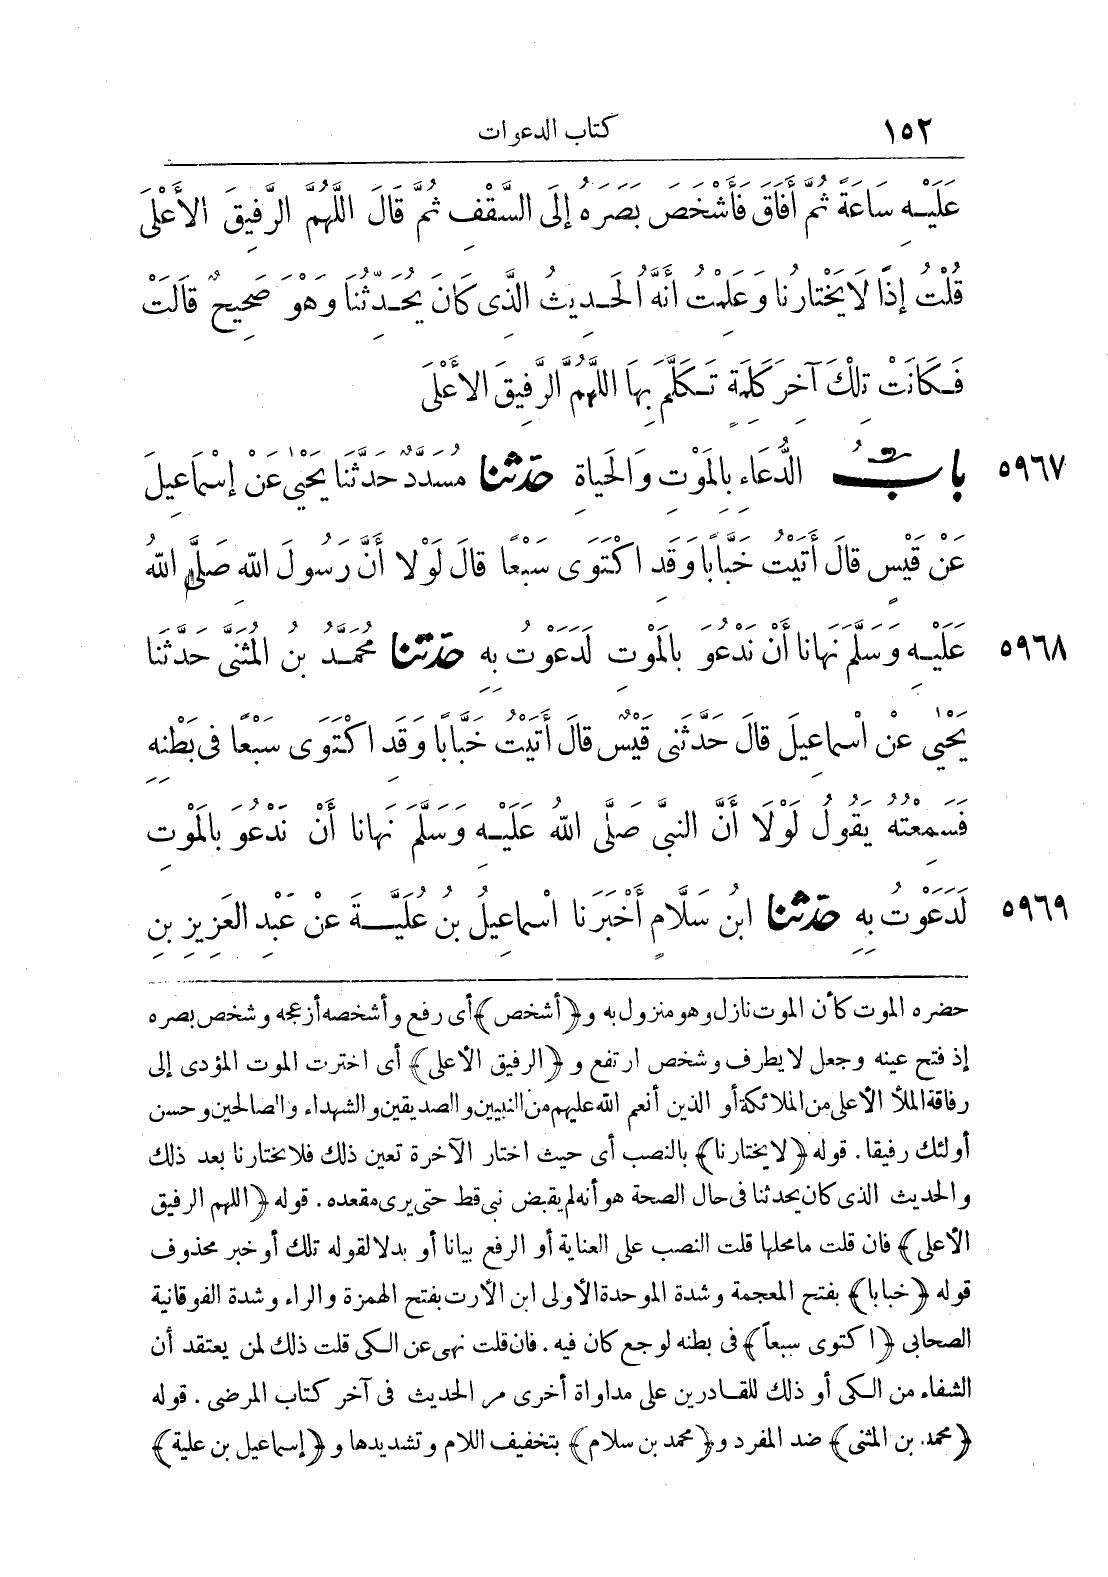 ١٥٢ كتاب الدعوات
عَلَيْهِ سَاعَةً ثُمَّ أَفَاقَ فَأَشْخَصَ بَصَرَهُ إِلَى السَّقْفِ ثُمَّ قَالَ اللَّهُمَّ الرَّفِيقَ الأَعْلَى
قُلْتُ إِذًا لَا يَخْتَارُنَا وَعَلِمْتُ أَنَّهُ الْحَدِيثُ الَّذِى كَانَ يُحَدِّثُنَا وَهْوَ صَحِيحٌ قَالَتْ
فَكَانَتْ تِلْكَ آخِرَ كَلِمَةٍ تَكَلَّمَ بِهَا اللَّهُمَّ الرَّفِيقَ الأَعْلَى
٥٩٦٧ بابُ الدُّعَاءِ بِالْمَوْتِ وَالْحَيَاةِ حدثنا مُسَدَّدٌ حَدَّثَنَا يَحْيَى عَنْ إِسْمَاعِيلَ
عَنْ قَيْسٍ قَالَ أَتَيْتُ خَبَّابًا وَقَدِ اكْتَوَى سَبْعًا قَالَ لَوْلَا أَنَّ رَسُولَ اللهِ صَلَّى اللهُ
٥٩٦٨ عَلَيْهِ وَسَلَّمَ نَهَانَا أَنْ نَدْعُوَ بِالْمَوْتِ لَدَعَوْتُ بِهِ حدثنا مُحَمَّدُ بْنُ الْمُثَنَّى حَدَّثَنَا
يَحْيَى عَنْ اسْمَاعِيلَ قَالَ حَدَّثَنِى قَيْسٌ قَالَ أَتَيْتُ خَبَّابًا وَقَدِ اكْتَوَى سَبْعًا فِى بَطْنِهِ
فَسَمِعْتُهُ يَقُولُ لَوْلَا أَنَّ النَّبِىَّ صَلَّى اللهُ عَلَيْهِ وَسَلَّمَ نَهَانَا أَنْ نَدْعُوَ بِالْمَوْتِ
٥٩٦٩ لَدَعَوْتُ بِهِ حدثنا ابْنُ سَلَامٍ أَخْبَرَنَا اسْمَاعِيلُ بْنُ عُلَيَّةَ عَنْ عَبْدِ الْعَزِيزِ بْنِ
حضره الموت كأن الموت نازل وهو منزول به و﴿أشخص﴾ أى رفع وأشخصه أزعجه وشخص بصره
إذ فتح عينه وجعل لا يطرف وشخص ارتفع و ﴿الرفيق الأعلى﴾ أى اخترت الموت المؤدى إلى
رفاقة الملأ الأعلى من الملائكة أو الذين أنعم الله عليهم من النبيين والصديقين والشهداء والصالحين وحسن
أولئك رفيقا. قوله ﴿لا يختارنا﴾ بالنصب أى حيث اختار الآخرة تعين ذلك فلا يختارنا بعد ذلك
والحديث الذى كان يحدثنا فى حال الصحة هو أنه لم يقبض نبى قط حتى يرى مقعده. قوله ﴿اللهم الرفيق
الأعلى﴾ فان قلت ما محلها قلت النصب على العناية أو الرفع بيانا أو بدلا لقوله تلك أو خبر محذوف
قوله ﴿خبابا﴾ بفتح المعجمة وشدة الموحدة الأولى ابن الأرت بفتح الهمزة والراء وشدة الفوقانية
الصحابى ﴿اكتوى سبعاً﴾ فى بطنه لوجع كان فيه. فان قلت نهى عن الكى قلت ذلك لمن يعتقد أن
الشفاء من الكى أو ذلك للقادرين على مداواة أخرى مر الحديث فى آخر كتاب المرضى. قوله
﴿محمد بن المثنى﴾ ضد المفرد و﴿محمد بن سلام﴾ بتخفيف اللام وتشديدها و﴿إسماعيل بن علية﴾